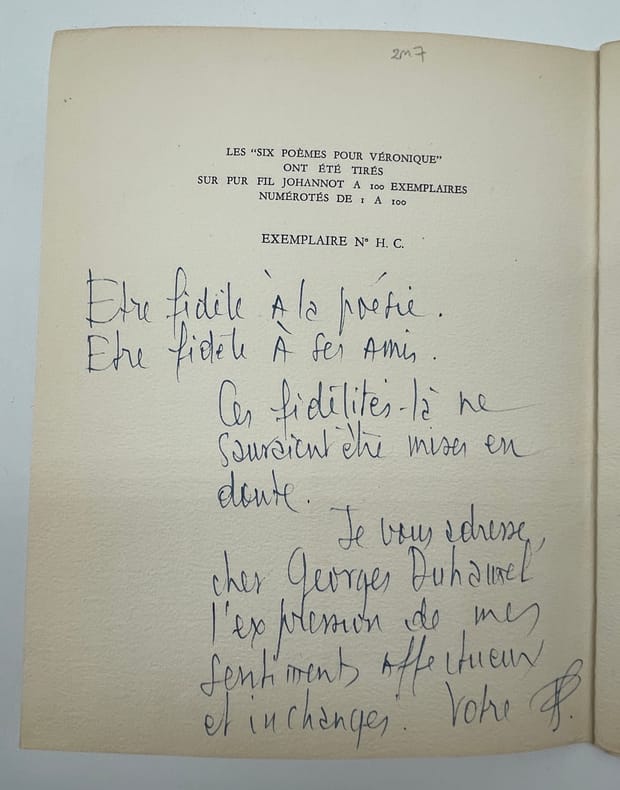 2m7
LES "SIX POÈMES POUR VÉRONIQUE"
ONT ÉTÉ TIRÉS
SUR PUR FIL JOHANNOT A 100 EXEMPLAIRES
NUMÉROTÉS DE 1 A 100
EXEMPLAIRE N° H. C.
Etre fidèle à la poésie.
Etre fidèle À ses Amis.
Ces fidélités-là ne
sauraient être mises en
doute.
Je vous adresse,
cher Georges Duhamel
l'expression de mes
sentiments Affectueux
et inchangés. Votre